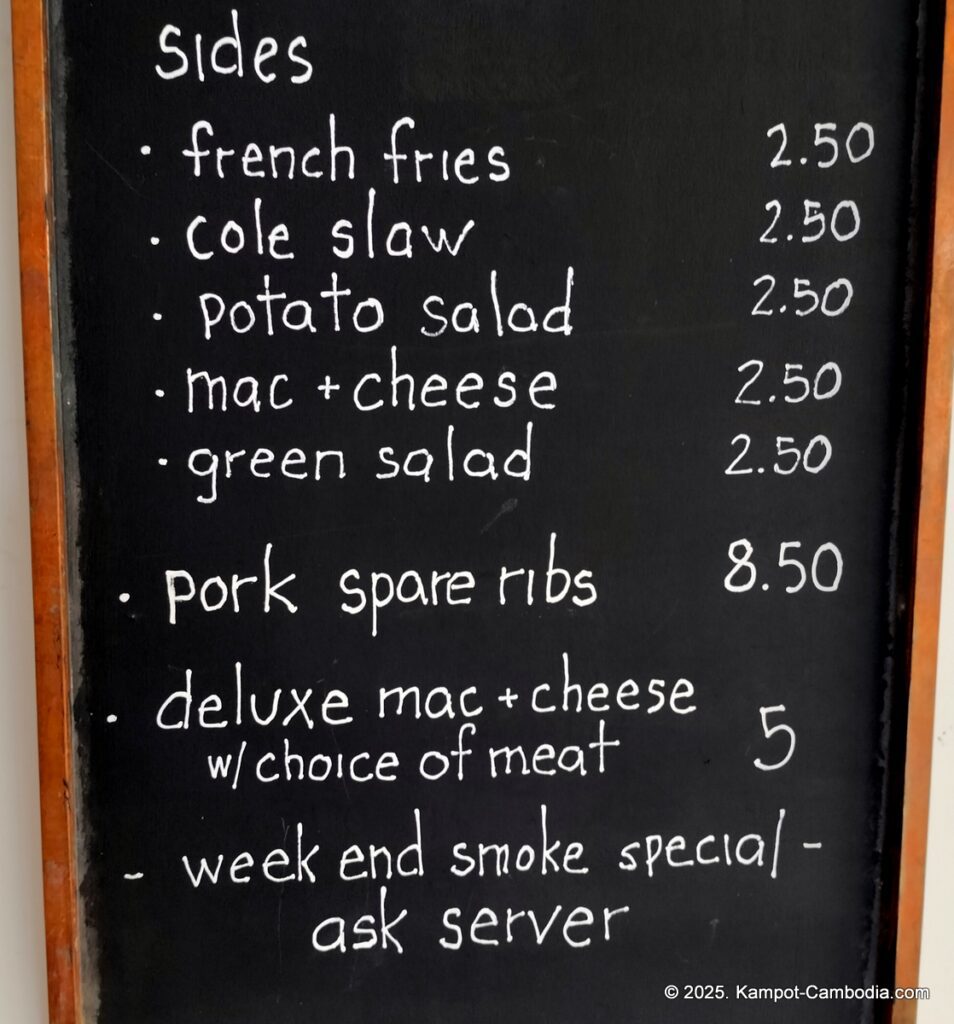 sides
· french fries 2.50
· cole slaw 2.50
· potato salad 2.50
· mac + cheese 2.50
· green salad 2.50
· pork spare ribs 8.50
· deluxe mac + cheese
w/ choice of meat 5
- week end smoke special -
ask server
© 2025. Kampot-Cambodia.com